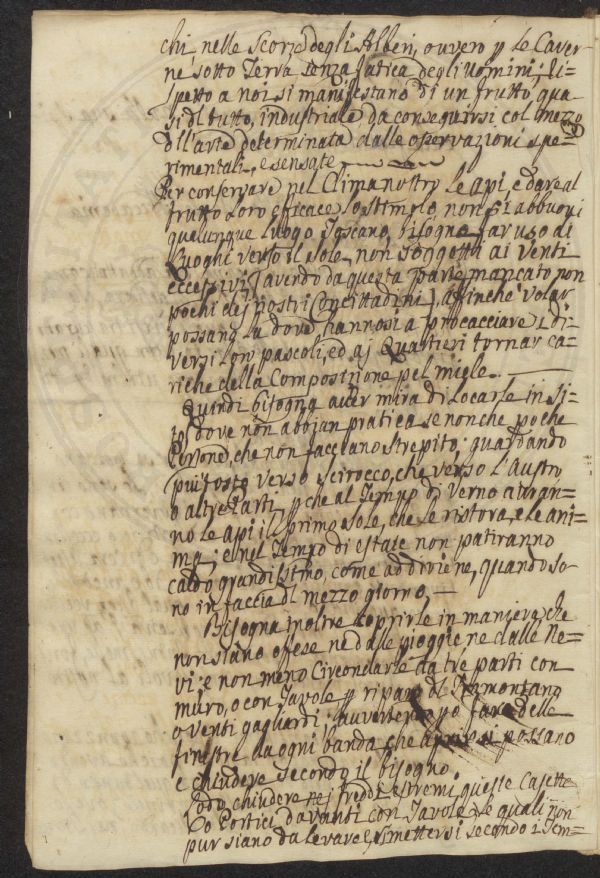 chi, nelle Scorze degli Alberi, ouvero p le Caver=
ne sotto Terra senza fatica degli Uomini; Ri=
spetto a noi si manifestano di un frutto qua=
si dl tutto industriale da conseguirsi col mezzo
dll'arte determinata dalle osservazioni spe=
rimentali, e sensate
Per conservare nel Clima nostro le Api, e dare al
frutto loro efficace lo stimolo, non si abbuoni
qualunque luogo Toscano, bisogna far uso di
luoghi verso il sole, non soggetti ai Venti
eccessivi (avendo da questa parte mancato non
pochi dei nostri Concittadini), affinche volar
possano la dove hannosi a procacciare i di=
versi loro pascoli, ed ai Quartieri tornar ca=
riche della Composizione pel miele.
Quindi bisogna aver mira di locarle in si=
to, dove non abbian pratica se non che poche
Persone, che non facciano strepito; guardando
piu tosto verso Scirocco, che verso l'Austro
o altre Parti, p che al Tempo di Verno auran=
no le Api il primo sole, che le ristora, e le ani=
ma; e nel Tempo di estate non patiranno
caldo grandissimo, come addiviene, quando so=
no in faccia dl mezzo giorno, —
Bisogna inoltre coprirle in maniera, che
non siano offese ne dalle pioggie ne dalle Ne=
vi: e non meno Circondarle da tre parti con
muro, o con Tavole p riparo dl Tramontano
o Venti gagliardi; avvertendo po fare delle
finestre da ogni banda che aprir si possano
e chiudere secondo il bisogno.
chiudere nei freddi estremi queste Casette
o Portici davanti con Tavole, le quali non
pur siano da levare, e rimettersi secondo i Tem=